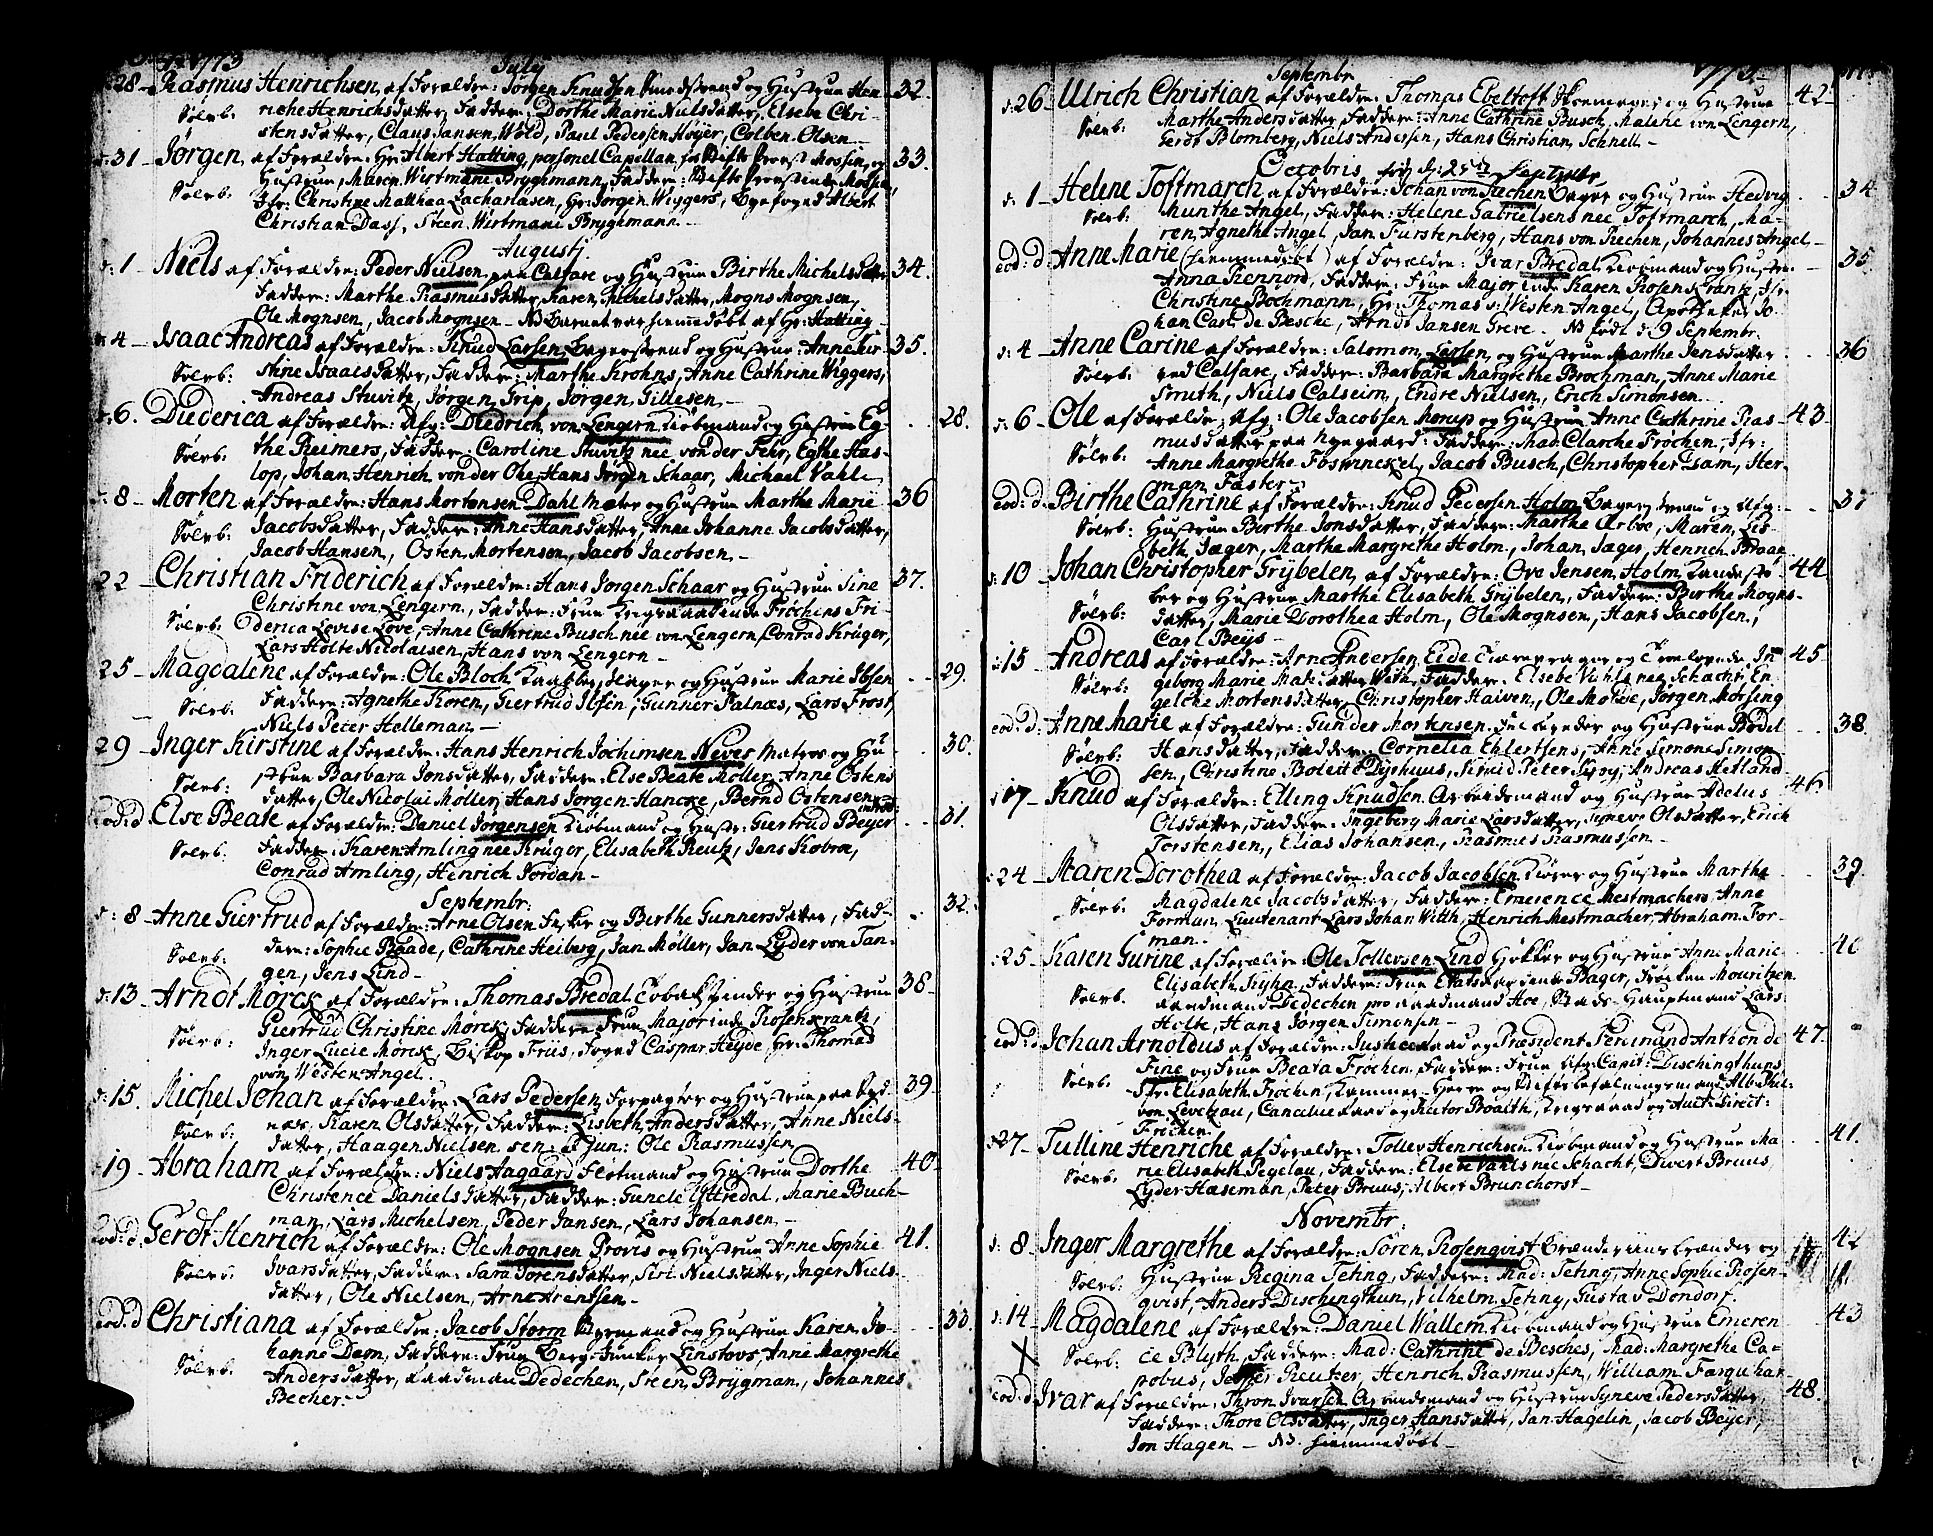 1773 July
28 - Rasmus Henrichsen, af Forældre: Jørgen Knudsen og Hustrue Hen- 32.
Sølvb: riche Henrichsdatter, Faddere: Dorthe Marie Nielsdatter, Elsebe Chri-
stensdatter, Claus Jansen Wold, Paul Pedersen Høyer, Colben Olsen -
d: 31 - Jørgen, af Forældre: Hr: Albert Hatting, personel Capellan og 33.
Sølvb: Hustrue, Maren Wirtmane Bryghmann, Faddere:
Jfr: Christine Matthea Zachariasen, Hr: Jørgen Wiggers, Byefoged Albert
Christian Dass, Steen Wirtmane Bryghmann -
Augustj.
d: 1 - Niels af Forældre: Peder Nielsen paa Calfare og Hustrue Birthe Michelsdatter 34.
Faddere: Marthe Rasmusdatter, Karen Michelsdatter, Mogns Mognsen,
Ole Mognsen, Jacob Mognsen - NB Barnet var hiemmedøbt af Hr: Hatting -
d: 4 - Isaac Andreas af Forældre: Knud Larsen og Hustrue: Anne Kir- 35.
Sølvb: stine Isaacsdatter, Faddere: Marthe Krohns, Anne Cathrine Wiggers,
Andreas Stuvitz, Jørgen Grip, Jørgen Gillesen -
d: 6. Diederica af Forældre: Afg: Diedrich von Lengern Kiøbmand og Hustrue Eg- 28.
Sølvb: the Reimers, Faddere: Caroline Stuvitz nee von der Fehr, Egthe Has-
lop, Johan Henrich von der Ohe, Hans Jørgen Schaar, Michael Vahl -
d: 8 - Morten af Forældre: Hans Mortensen Dahl og Hustrue Marthe Marie 36
Sølvb: Jacobsdatter, Faddere: Anne Hansdatter, Anne Johanne Jacobsdatter,
Jacob Hansen, Osten Mortensen, Jacob Jacobsen -
22 - Christian Friderich af Forældre: Hans Jørgen Schaar og Hustrue Sine 37.
Christine von Lengern, Faddere: Frue Fröchens Fri-
Sølvb: derica Levise Love, Anne Cathrine Busch nee von Lengern, Conrad Krüger,
Lars Holte Nicolaisen, Hans von Lengern -
25 - Magdalene af Forældre: Ole Bloch og Hustrue Marie Ibsen 29.
Sølvb: Faddere: Agnethe Koren, Giertrud Ibsen, Gunner Falnæs, Lars Frost,
Niels Peter Helleman -
29 - Inger Kirstine af Forældre: Hans Henrich Jochimsen Neves Matros og Hu- 30.
Sølvb: strue Barbara Jonsdatter, Faddere: Else Beate Møller, Anne Ostens-
datter, Ole Nicolai Møller, Hans Jørgen Hancke, Bernd Ostensen
eod: d Else Beate af Forældre: Daniel Jørgensen Kiøbmand og Hustr: Giertrud Beyer 31.
Sølvb: Faddere: Karen Amling nee Krüger, Elisabeth Reutz, Jens Kobroe,
Conrad Amling, Henrich Jordan -
Septembr:
d: 8 - Anne Giertrud af Forældre: Arne Olsen og Birthe Gunnersdatter, Fad- 32.
Sølvb: dere: Sophie Baade, Cathrine Heiberg, Jan Møller, Jan Lyder von Tan-
gen, Jens Lind -
d: 13 - Arndt Mørck af Forældre: Thomas Bredal Tobakspinder og Hustrue 38 -
Sølvb: Giertrud Christine Mørck, Faddere: Frue Majorinde Rosenkrantz,
Inger Lucie Mørck, Biskop Friis, Foged Caspar Heyde, Hr: Thomas
von Westen Angel.
d: 15. Michel Johan af Forældre: Lars Pedersen, Forpagter og Hustrue paa 39.
Sølvb: Karen Olsdatter, Faddere: Lisbeth Andersdatter, Anne Niels-
datter, Haagen Nielsen sen: & jun: Ole Rasmussen
19 - Abraham af Forældre: Niels Aagaard Flotmand og Hustrue Dorthe 40 -
Christence Danielsdatter, Faddere: Guncle Yttredal, Marie Buch-
man, Lars Michelsen, Peder Jansen, Lars Johansen -
eod: d. Gerdt Henrich af Forældre: Ole Mognsen Provis og Hustrue Anne Sophie 41.
Sølvb: Ivarsdatter, Faddere: Sara Sørensdatter, Siri Nielsdatter, Inger Niels-
datter, Ole Nielsen, Arne Arentsen -
eod: d Christiana af Forældre: Jacob Storm og Hustrue Karen Jo- 33.
Sølvb: hanne Dam, Faddere: Frue Finstovs, Anne Margrethe
Andersdatter, Raadman Dedechen, Steen Brygman, Johannes
Becher.
1773. Septembr
d: 26 Ulrich Christian af Forældre: Thomas Ebeltoft Skoemager og Hustrue 42 -
Sølvb: Marthe Andersdatter, Faddere: Anne Cathrine Busch, Malene von Lengern,
Gerdt Blomberg, Niels Andersen, Hans Christian Schnell -
Octobris
d: 1 - Helene Toftmarch af Forældre: Johan von Riechen Bager og Hustrue Hedvig 34
Sølvb: Munthe Angel, Faddere: Helene Gabrielsens nee Toftmarch, Ma-
ren Agnethe Angel, Jan Furstenberg, Hans von Riechen, Johannes Angel -
eod: d: Anne Marie (hiemmedøbt) af Forældre: Ivar Bredal Kiøbmand og Hustrue 35
Anna Rennord, Faddere: Frue Majorinde Karen Rosenkrantz, Jfr:
Christine Bochmann, Hr: Thomas v: Westen Angel, Apotheker Jo-
han Cast de Besche, Arndt Jansen Greve. NB født d: 9 Septembr.
d: 4 - Anne Carine af Forældre: Salomon Larsen og Hustrue Marthe Jensdatter 36
Sølvb: ved Calfare, Faddere: Barbara Margrethe Brochman, Anne Marie
Smuth, Niels Calseim, Endre Nielsen, Erich Simonsen -
d: 6 - Ole af Forældre: Afg: Ole Jacobsen Korup og Hustrue Anne Cathrine Ras- 43 -
Sølvb: musdatter paa Nyegaard: Faddere: Mad: Clarche Fröchen, Jfr:
Anne Margrethe Foswinckel, Jacob Busch, Christopher Dam, Her-
man Faster -
eod: d: Birthe Cathrine af Forældre: Knud Pedersen Holm og Afg: 37
Sølvb: Hustrue Birthe Jonsdatter, Faddere: Marthe Arboe, Maren Lis-
beth Jæger, Marthe Margrethe Holm, Johan Jæger, Henrich Braae
d: 10 - Johan Christopher Grybelen af Forældre: Ove Jensen Holm Kandestø- 44
Sølvb: ber og Hustrue Marthe Elisabeth Grybelen, Faddere: Birthe Mogns-
datter, Marie Dorothea Holm, Ole Mognsen, Hans Jacobsen,
Carl Beys -
d: 15 - Andreas af Forældre: Arne Andersen Eide og In- 45 -
Sølvb: geborg Marie With, Faddere: Elsebe Vahls nee Schacht, En-
gelche Mortensdatter, Christopher Haiven, Ole Moldoe, Jørgen Morseng
eod: d: Anne Marie af Forældre: Gunder Mortensen og Hustrue Bodel 38
Sølvb: Hansdatter, Faddere: Cornelia Ehlertsens, Anne Simone Simon-
sen, Christine Bolette Dyrhuus, Knud Peter Kyoy, Andreas Hetland
d 17 - Knud af Forældre: Elling Knudsen Arbeidsmand og Hustrue Adelus 46.
Olsdatter, Faddere: Ingeborg Marie Larsdatter, Syneve Olsdatter, Erich
Torstensen, Elias Johansen, Rasmus Rasmussen -
24 - Karen Dorothea af Forældre: Jacob Jacobsen Kiører og Hustrue Marthe 39
Sølvb: Magdalene Jacobsdatter, Faddere: Emerence Mestmachers, Anne
Forman, Lieutenant Lars Johan With, Henrich Mestmacher, Abraham For-
man.
25 - Karen Gurine af Forældre: Ole Tollevsen Lind Høkker og Hustrue Anne Marie 40
Elisabeth Kyhn, Faddere: Frue Etatsraadinde Bager, Frøken Mouritzen
Sølvb: Raadmand Dedechen pro Raadmand Hoe, Hauptmand Lars
Holte, Hans Jørgen Simonsen -
eod: d. Johan Arnoldus af Forældre: Justiceraad og Præsident Ferdinand Anthon de 47.
Sølvb: Fine og Frue Beata Fröchen, Faddere: Frue Afg: Capit: Dischingthuns
Jfr: Elisabeth Fröchen, Kammer-Herre og Stiftsbefalningsmand Alb: Phil:
von Levetzau, Cancelieraad og Rector Boalth, Krigsraad og Auct: Direct:
Frichen.
27 - Tulline Henriche af Forældre: Tollev Henrichsen Kiøbmand og Hustrue Ma- 41.
Sølvb: rie Elisabeth Pegelau, Faddere: Elsebe Vahls nee Schacht, Divert Bruus,
Lyder Haseman, Peter Bruus, Albert Brunchorst -
Novembr:
d: 8 - Inger Margrethe af Forældre: Søren Rosenqvist og 42
Sølvb: Hustrue Regina Tehng, Faddere: Mad: Tehng, Anne Sophie Rosen-
qvist, Anders Dischingthun, Vilhelm Tehng, Gustav Dondorf.
d: 14 - Magdalene af Forældre: Daniel Wallem Kiøbmand og Hustrue Emeren- 43
Sølvb: ce Blyth, Faddere: Mad: Cathrine de Besches, Mad: Margrethe Ca-
pobus, Reutzer, Henrich Rasmussen, William Farquhar -
eod: d. Ivar af Forældre: Thron Ivarsen Arbeidsmand og Hustrue Syneve Pedersdatter, 48.
Faddere: Thore Olsdatter, Inger Hansdatter, Jan Hagelin, Jacob Beyer,
Jon Hagen - NB. hiemmedøbt -